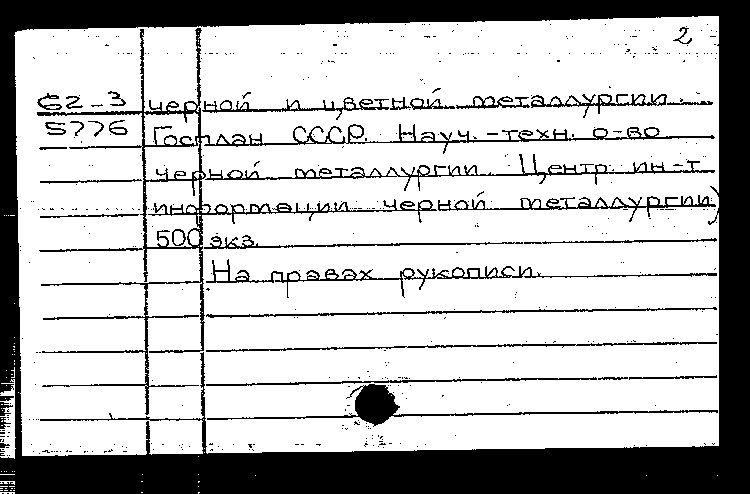 2
62-3 черной и цветной металлургии.
5776 Госплан СССР. Науч.-техн. о-во
черной металлургии. Центр. ин-т
информации черной металлургии)
500 экз.
На правах рукописи.